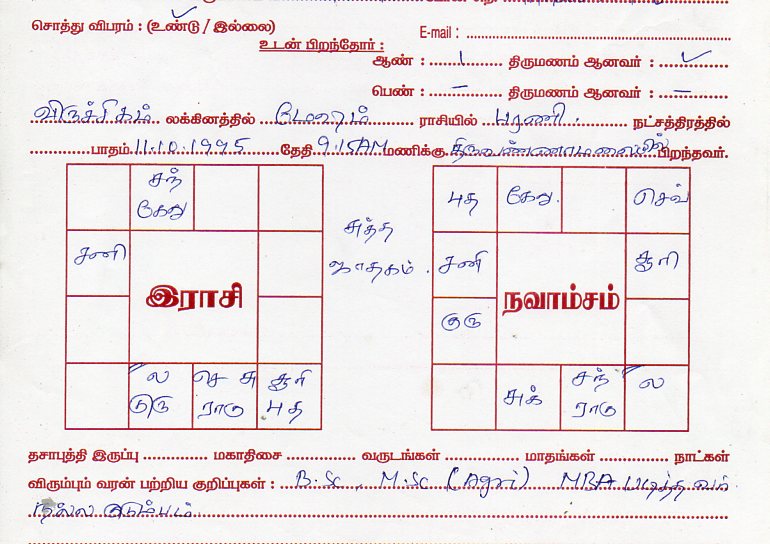 சொத்து விபரம் : (உண்டு / இல்லை)
E-mail :
உடன் பிறந்தோர் :
ஆண் : 1 திருமணம் ஆனவர் : ✓
பெண் : – திருமணம் ஆனவர் : –
விருச்சிகம் லக்கினத்தில் மேஷம் ராசியில் பரணி. நட்சத்திரத்தில்
பாதம் 11.10.1995 தேதி 9.15AM மணிக்கு திருவண்ணாமலையில் பிறந்தவர்.
சந்
கேது
சனி
இராசி
ல
குரு
செ சு
ராகு
சூரி
புத
சுத்த
ஜாதகம்.
புத கேது செவ்
சனி சூரி
நவாம்சம்
குரு
சுக்
சந்
ராகு
ல
தசாபுத்தி இருப்பு மகாதிசை வருடங்கள் மாதங்கள் நாட்கள்
விரும்பும் வரன் பற்றிய குறிப்புகள் : B.Sc, M.Sc (Agri) MBA படித்தவர்
நல்ல குடும்பம்